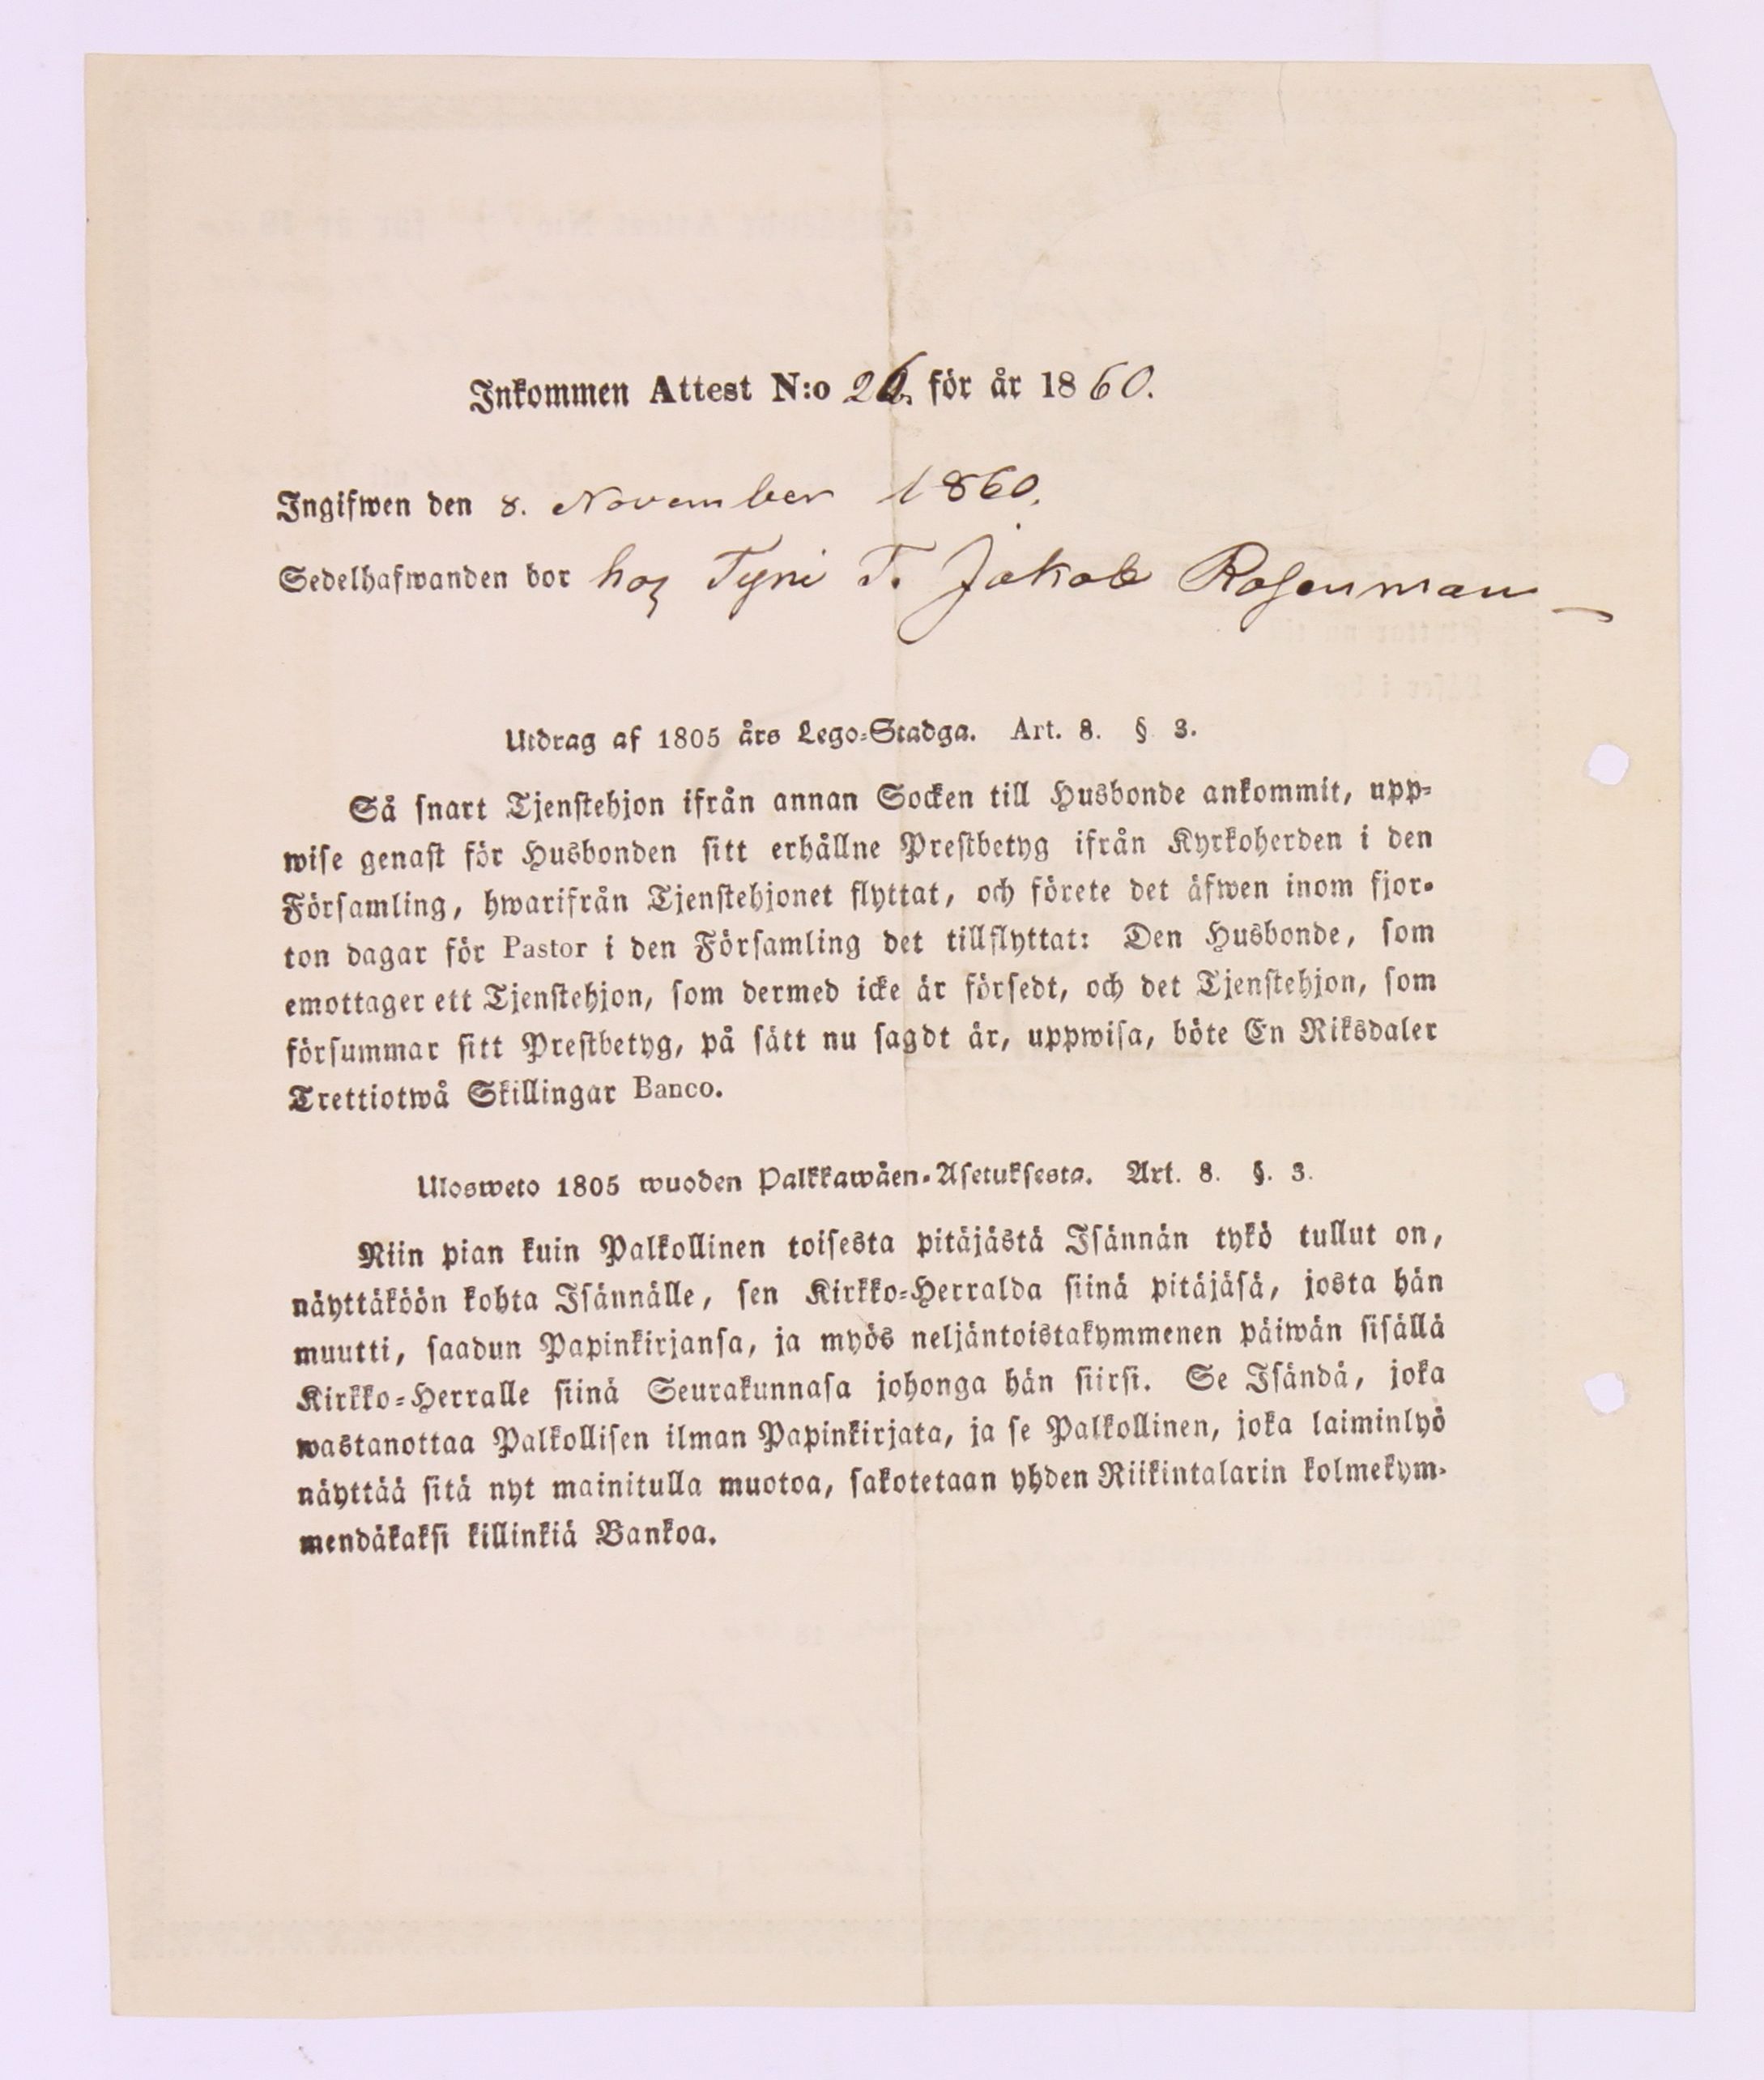 Inkommen Attest N:o 26. för år 1860.
Ingifwen den 8. November 1860.
Sedelhafwanden bor hos Tyni T. Jakob Rosenman
Utdrag af 1805 års Lego-Stadga. Art. 8. § 3.
Så snart Tjenstehjon ifrån annan Socken till Husbonde ankommit, upp-
wise genast för Husbonden sitt erhållne Prestbetyg ifrån Kyrkoherden i den
Församling, hwarifrån Tjenstehjonet flyttat, och förete det äfwen inom fjor-
ton dagar för Pastor i den Församling det tillflyttat: Den Husbonde, som
emottager ett Tjenstehjon, som dermed icke är försedt, och det Tjenstehjon, som
försummar sitt Prestbetyg, på sätt nu sagdt är, uppwisa, böte En Riksdaler
Trettiotwå Skillingar Banco.
Ulosweto 1805 wuoden Palkkawäen-Asetuksesta. Art. 8. §. 3.
Niin pian kuin Palkollinen toisesta pitäjästä Isännän tykö tullut on,
näyttäköön kohta Isännälle, sen Kirkko-Herralda siinä pitäjäsä, josta hän
muutti, saadun Papinkirjansa, ja myös neljäntoistakymmenen päiwän sisällä
Kirkko-Herralle siinä Seurakunnasa johonga hän siirsi. Se Isändä, joka
wastanottaa Palkollisen ilman Papinkirjata, ja se Palkollinen, joka laiminlyö
näyttää sitä nyt mainitulla muotoa, sakotetaan yhden Riikintalarin kolmekym-
mendäkaksi killinkiä Bankoa.